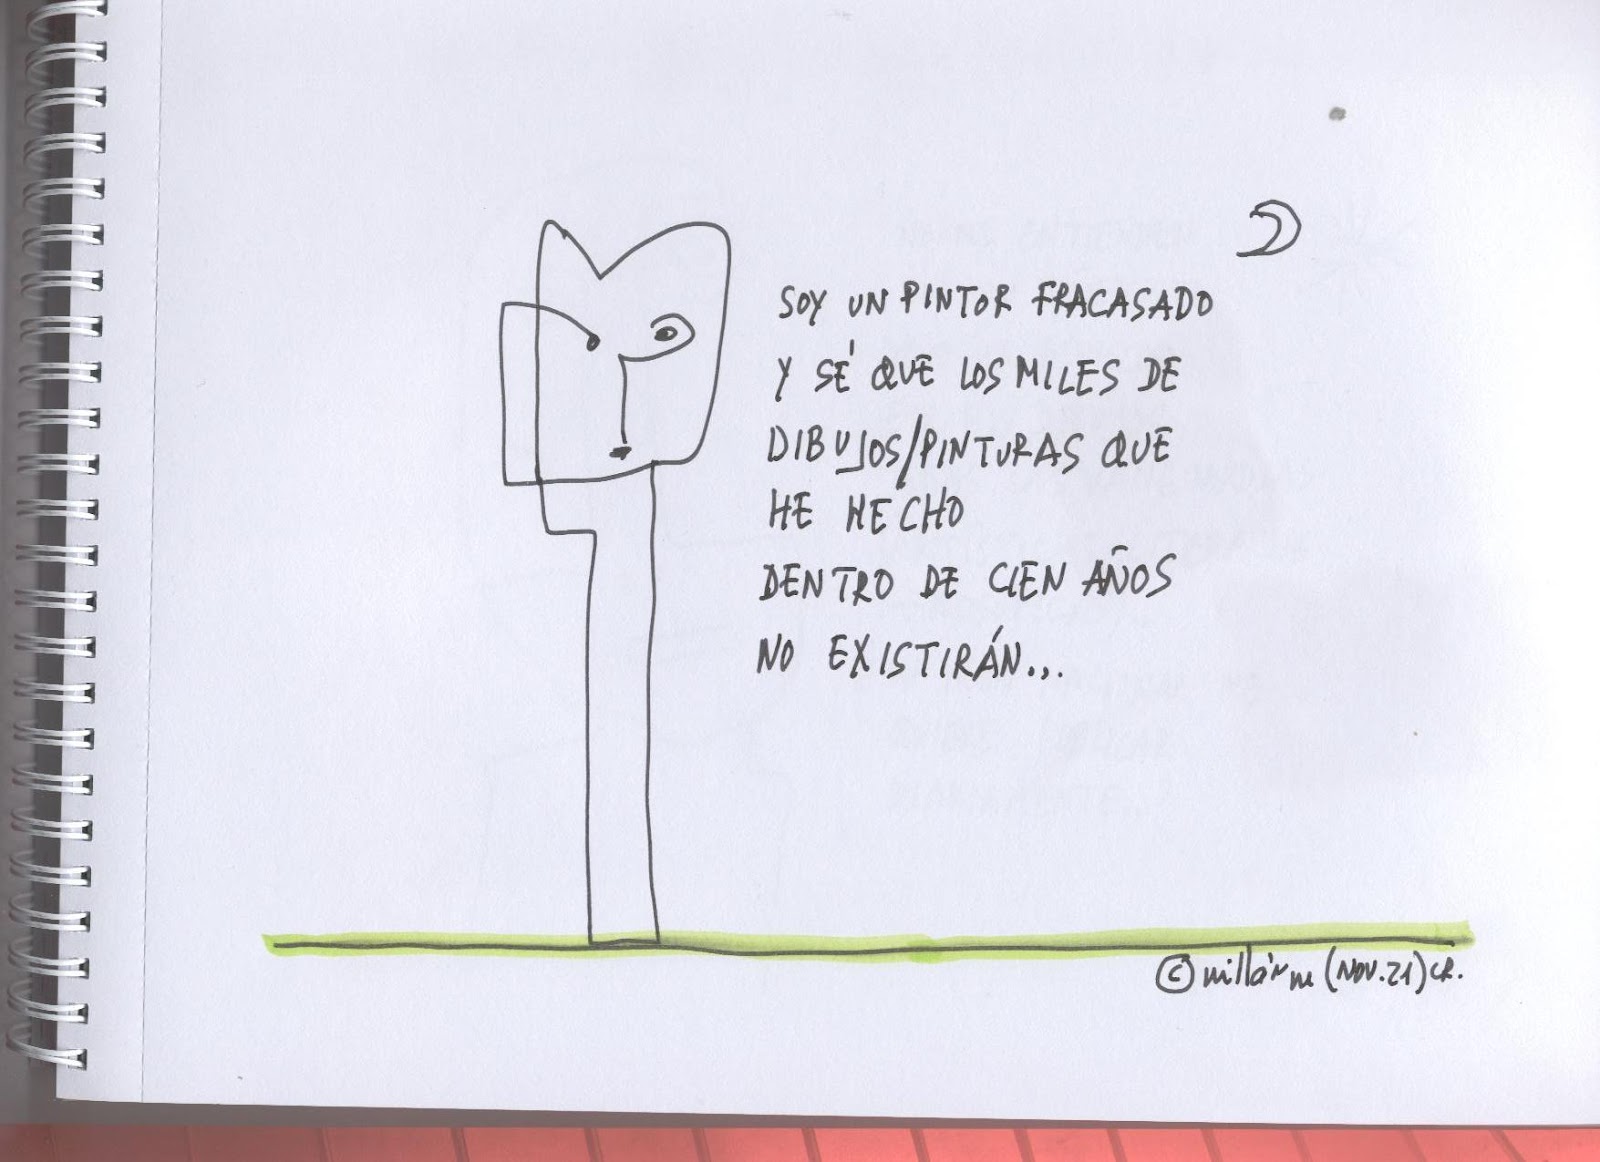 SOY UN PINTOR FRACASADO
Y SÉ QUE LOS MILES DE
DIBUJOS/PINTURAS QUE
HE HECHO
DENTRO DE CIEN AÑOS
NO EXISTIRÁN...
© millán m (NOV.21) CR.